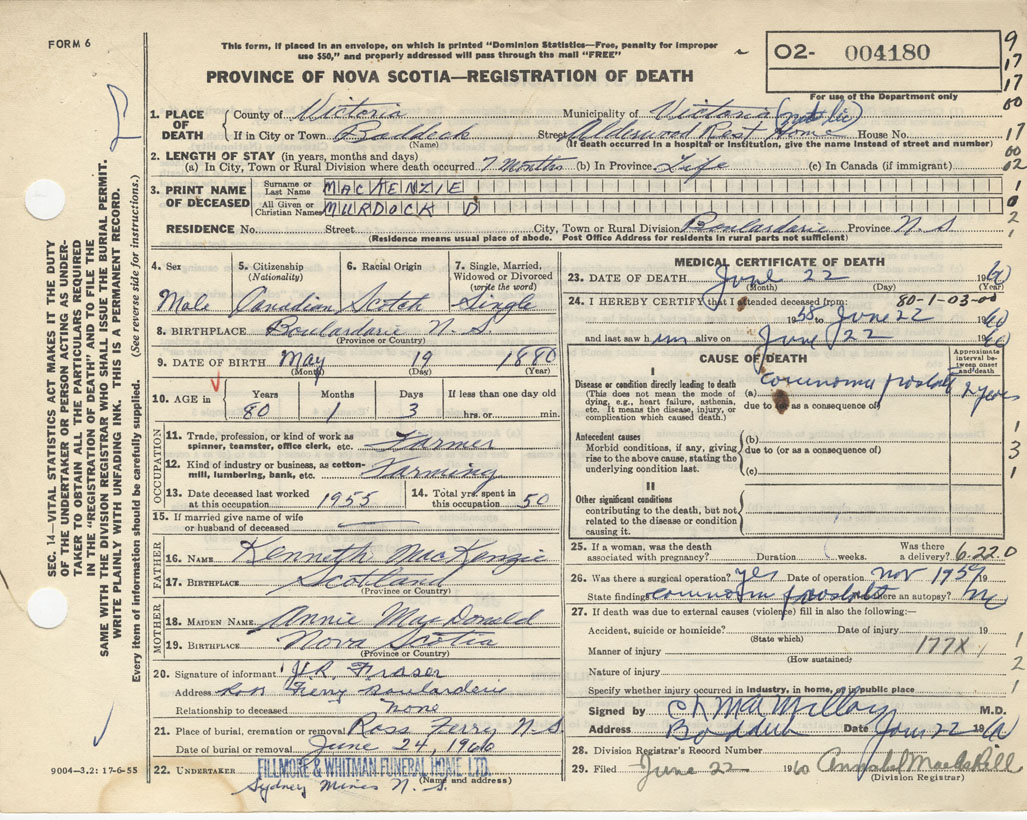 FORM 6
This form, if placed in an envelope, on which is printed "Dominion Statistics—Free, penalty for improper
use $50," and properly addressed will pass through the mail "FREE"
PROVINCE OF NOVA SCOTIA—REGISTRATION OF DEATH
02- 004180
For use of the Department only
9
17
17
00
17
60
02
1
0
2
1
1. PLACE OF DEATH
County of Victoria Municipality of Victoria
If in City or Town Baddeck Street Alderwood Rest Home House No.
(Name) (If death occurred in a hospital or institution, give the name instead of street and number)
2. LENGTH OF STAY (in years, months and days)
(a) In City, Town or Rural Division where death occurred 7 Months (b) In Province Life (c) In Canada (if immigrant)
3. PRINT NAME OF DECEASED
Surname or Last Name MACKENZIE
All Given or Christian Names MURDOCK D
RESIDENCE No. Street City, Town or Rural Division Boulardarie Province N.S
(Residence means usual place of abode. Post Office Address for residents in rural parts not sufficient)
4. Sex 5. Citizenship (Nationality) 6. Racial Origin 7. Single, Married, Widowed or Divorced (write the word)
Male Canadian Scotch Single
8. BIRTHPLACE Boulardarie N. S
(Province or Country)
9. DATE OF BIRTH May 19 1880
(Month) (Day) (Year)
10. AGE in Years Months Days If less than one day old
80 1 3 hrs. or min.
OCCUPATION
11. Trade, profession, or kind of work as spinner, teamster, office clerk, etc. Farmer
12. Kind of industry or business, as cotton-mill, lumbering, bank, etc. Farming
13. Date deceased last worked at this occupation 1955 14. Total yrs. spent in this occupation 50
15. If married give name of wife or husband of deceased
FATHER
16. NAME Kenneth MacKenzie
17. BIRTHPLACE Scotland
(Province or Country)
MOTHER
18. MAIDEN NAME Annie MacDonald
19. BIRTHPLACE Nova Scotia
(Province or Country)
20. Signature of informant H.R. Fraser
Address Ross Ferry Boularderie
Relationship to deceased none
21. Place of burial, cremation or removal Ross Ferry N.S.
Date of burial or removal June 24, 1960
22. UNDERTAKER FILLMORE & WHITMAN FUNERAL HOME LTD.
(Name and address)
Sydney Mines N. S.
MEDICAL CERTIFICATE OF DEATH
23. DATE OF DEATH June 22 1960
(Month) (Day) (Year)
80-1-03-00
24. I HEREBY CERTIFY that I attended deceased from:
1958 to June 22 1960
and last saw him alive on June 22 1960
CAUSE OF DEATH
Approximate interval between onset and death
I
Disease or condition directly leading to death
(This does not mean the mode of dying, e.g., heart failure, asthenia, etc. It means the disease, injury, or complication which caused death.)
(a) carcinoma prostate 2 years
due to (or as a consequence of)
Antecedent causes
Morbid conditions, if any, giving rise to the above cause, stating the underlying condition last.
(b)
due to (or as a consequence of)
(c)
II
Other significant conditions
contributing to the death, but not related to the disease or condition causing it.
1
3
1
25. If a woman, was the death associated with pregnancy? Duration weeks. Was there a delivery? 6-22.0
26. Was there a surgical operation? yes Date of operation Nov 1959 19
State findings carcinoma prostate Was there an autopsy? no
27. If death was due to external causes (violence) fill in also the following:—
Accident, suicide or homicide? Date of injury 19
(State which)
Manner of injury 177X
(How sustained)
Nature of injury
Specify whether injury occurred in industry, in home, or in public place
1
2
1
Signed by C L MacMillan M.D.
Address Baddeck Date June 22 1960
28. Division Registrar's Record Number
29. Filed June 22 1960 Annabel MacAskill
(Division Registrar)
SEC. 14—VITAL STATISTICS ACT MAKES IT THE DUTY
OF THE UNDERTAKER OR PERSON ACTING AS UNDER-
TAKER TO OBTAIN ALL THE PARTICULARS REQUIRED
IN THE "REGISTRATION OF DEATH" AND TO FILE THE
SAME WITH THE DIVISION REGISTRAR WHO SHALL ISSUE THE BURIAL PERMIT.
WRITE PLAINLY WITH UNFADING INK. THIS IS A PERMANENT RECORD.
Every item of information should be carefully supplied. (See reverse side for instructions.)
9004—3.2: 17-6-55